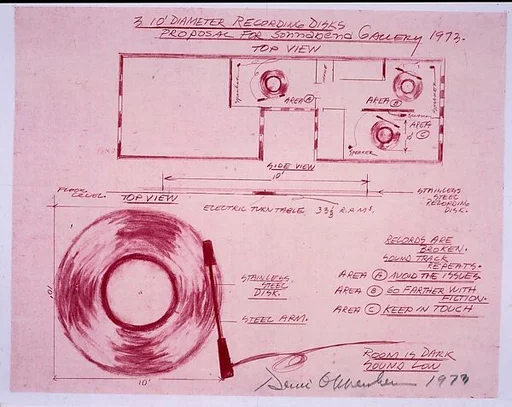 3 10' DIAMETER RECORDING DISKS
PROPOSAL FOR SONNABEND GALLERY 1973.
TOP VIEW
SPEAKER
AREA A
AREA B
SPEAKER
SPEAKER
AREA C
SPEAKER
10'
SIDE VIEW
10'
FLOOR LEVEL.
TOP VIEW
STAINLESS
STEEL
RECORDING
DISK.
ELECTRIC TURNTABLE 33⅓ R.P.M.S.
RECORDS ARE
BROKEN.
SOUND TRACK
REPEATS.
AREA A AVOID THE ISSUES
AREA B GO FARTHER WITH
FICTION.
AREA C KEEP IN TOUCH
STAINLESS
STEEL
DISK.
STEEL ARM.
10'
10'
ROOM IS DARK
SOUND LOW
Dennis Oppenheim 1973